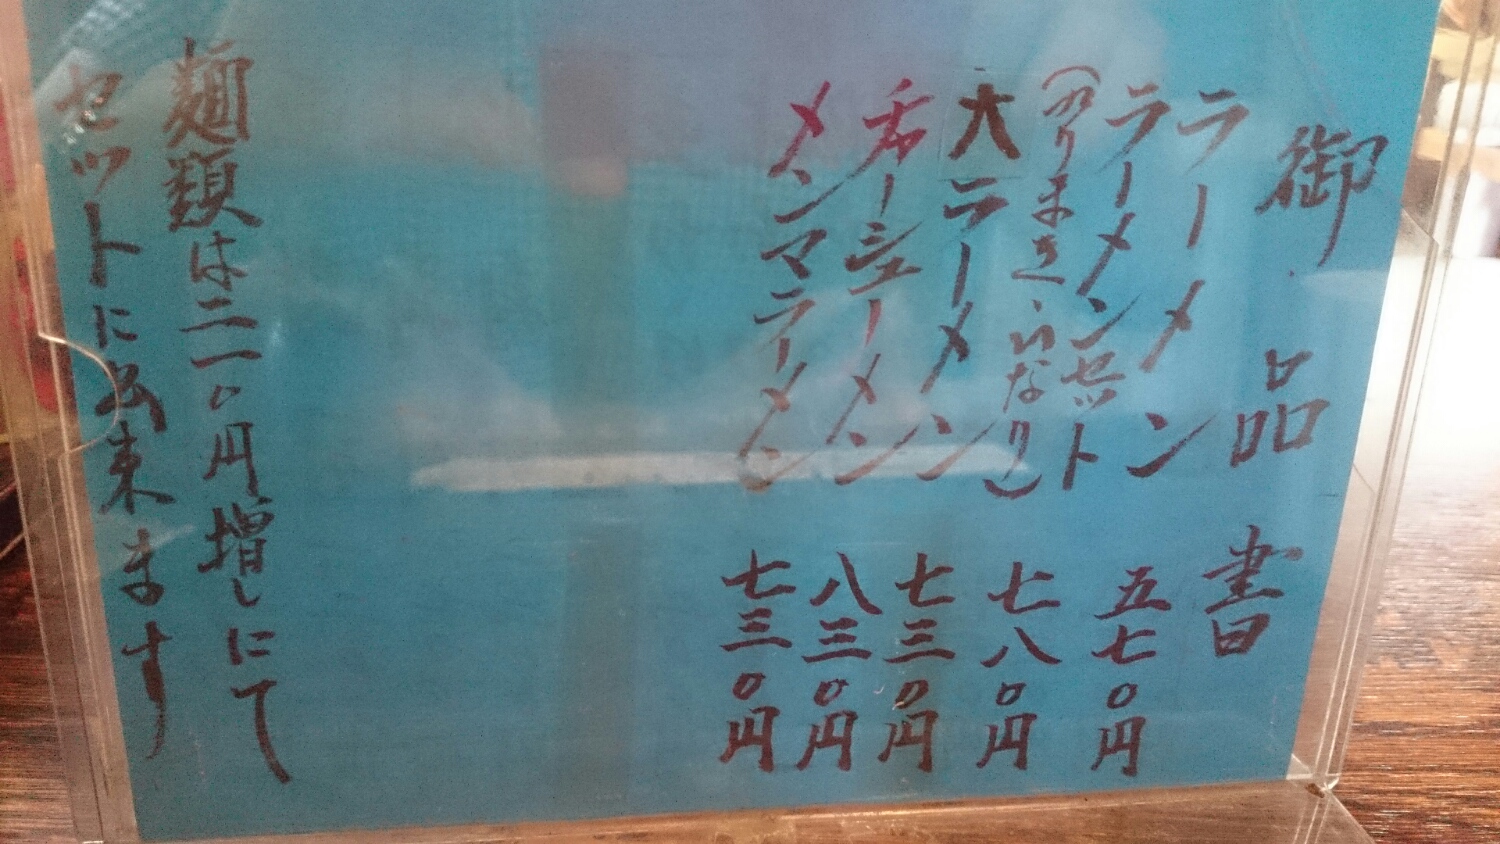 御品書
ラーメン 五七〇円
ラーメンセット 七八〇円
(のりまき、いなり)
大ラーメン 七三〇円
チャーシューメン 八三〇円
メンマラーメン 七三〇円
麺類は二一〇円増しにて
セットに出来ます